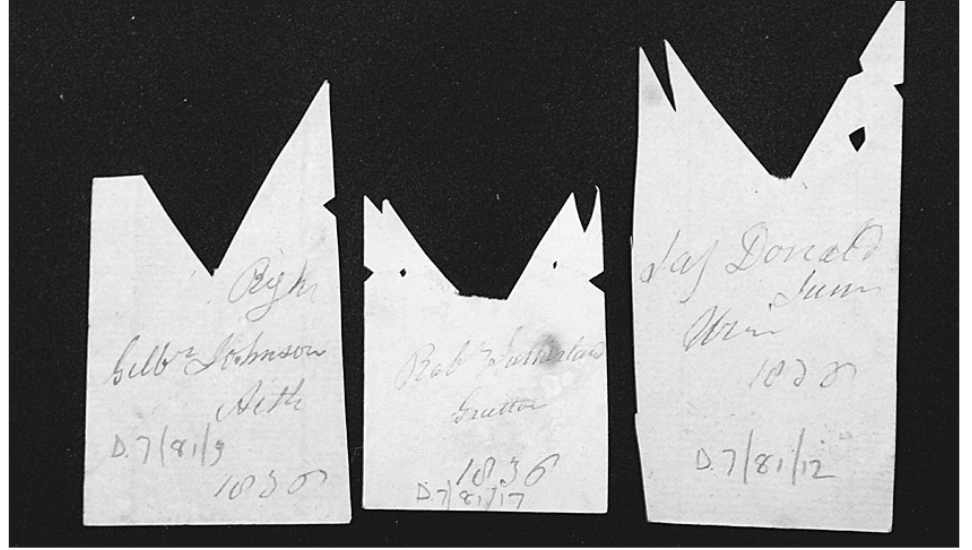 Right
Gilbt Johnson
Aith
D.7/81/9
1836
Robt Sutherland
Gruttin
1836
D.7/81/17
Jas Donald
Junr
Urin
1836
D.7/81/12